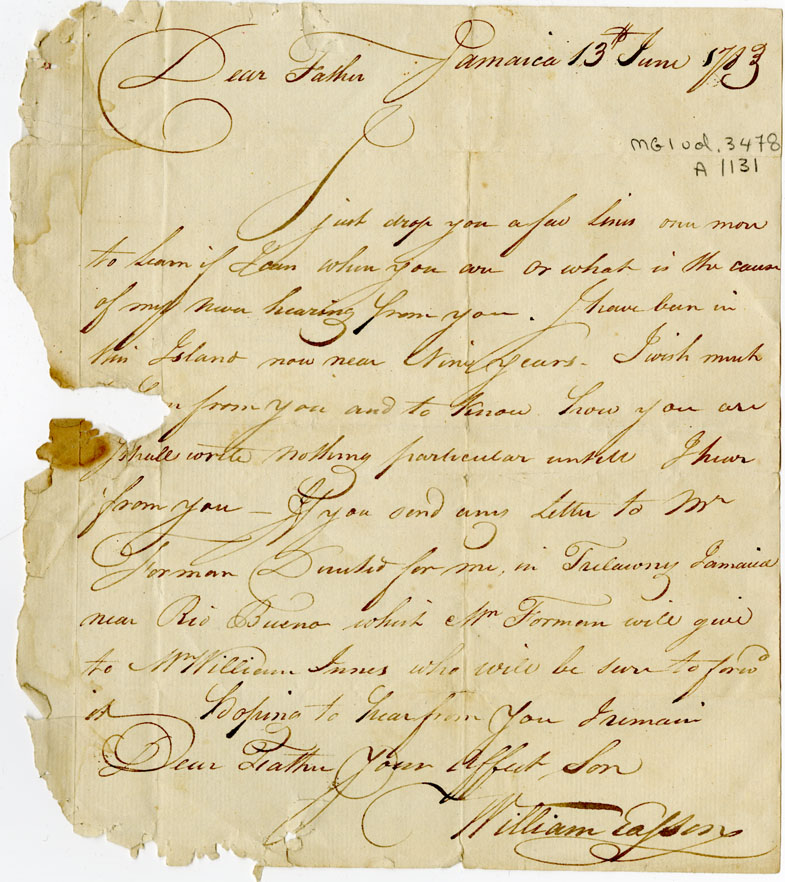 Dear Father Jamaica 13th June 1783
MG1 vol. 3478
A 1131
I just drop you a few lines one more
to learn if I can wher you are or what is the cause
of my never hearing from you. I have ben in
this Island now near Nine years - I wish much
from you and to know how you are
I shall write nothing particular untill I hear
from you - If you send any Letter to Mr
Forman Directed for me, in Trelawny Jamaica
near Rio Bueno which Mr Forman will give
to Mr William Innes who will be sure to forwd
it Hoping to hear from you I remain
Dear Father Your Affect. Son
William Easson